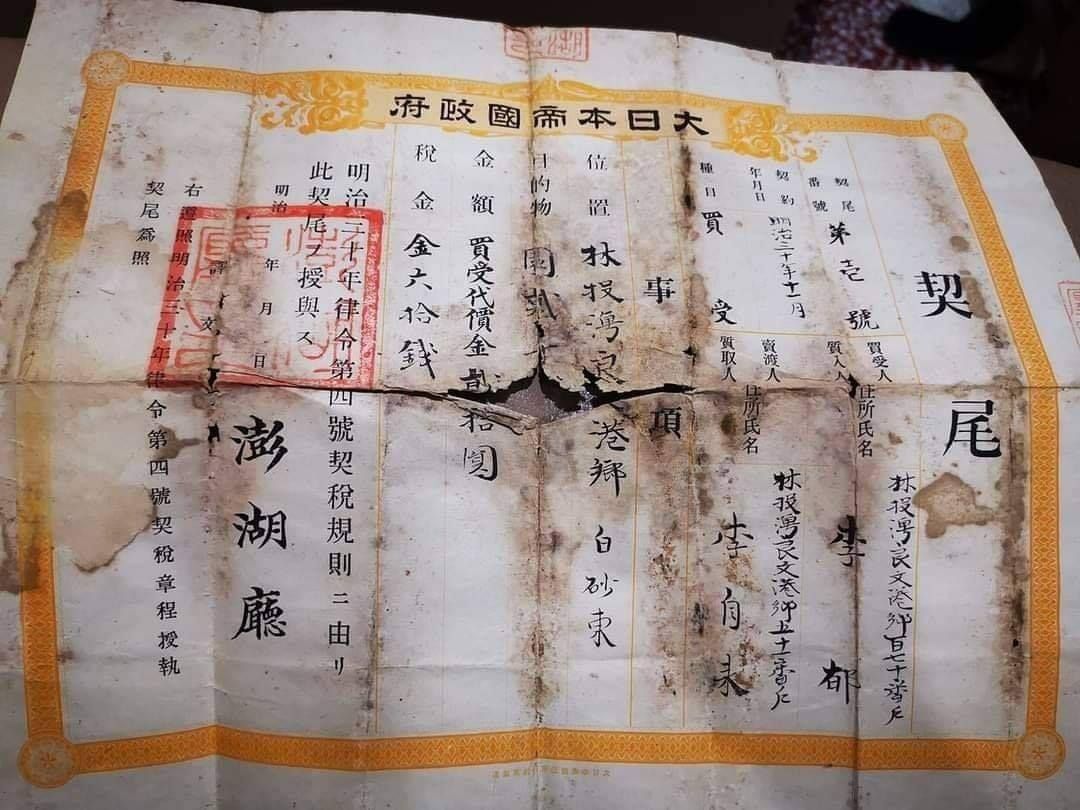 大日本帝國政府
契尾
契尾番號 第壱號
買受人 質入人 住所氏名
林投灣良文港鄉百七十番戶
李郁
契約年月日 明治三十年十一月
賣渡人 質取人 住所氏名
林投灣良文港鄉五十一番戶
李自未
種目 買受
事項
位置 林投灣良港鄉 白砂東
目的物 園
金額 買受代價金貳拾圓
稅金 金六拾錢
明治三十年律令第四號契稅規則ニ由リ
此契尾ヲ授與ス
明治 年 月 日
澎湖廳
譯文
右遵照明治三十年律令第四號契稅章程授執
契尾爲照